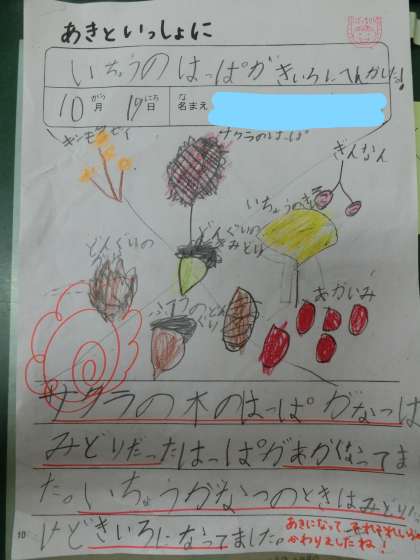 あきといっしょに
いちょうのはっぱがきいろにへんかした。
10がつ月 19にち日 な名まえ
キンモクセイ
サクラのはっぱ
ぎんなん
いちょうのき
どんぐりの
どんぐりの
みどり
ふつうのどんぐり
あかいみ
サクラの木のはっぱがなつは
みどりだったはっぱがあかくなってま
た。いちょうがなつのときはみどりだ
けどきいろになってました。
あきになって、それぞれいろが
かわりましたね!
10